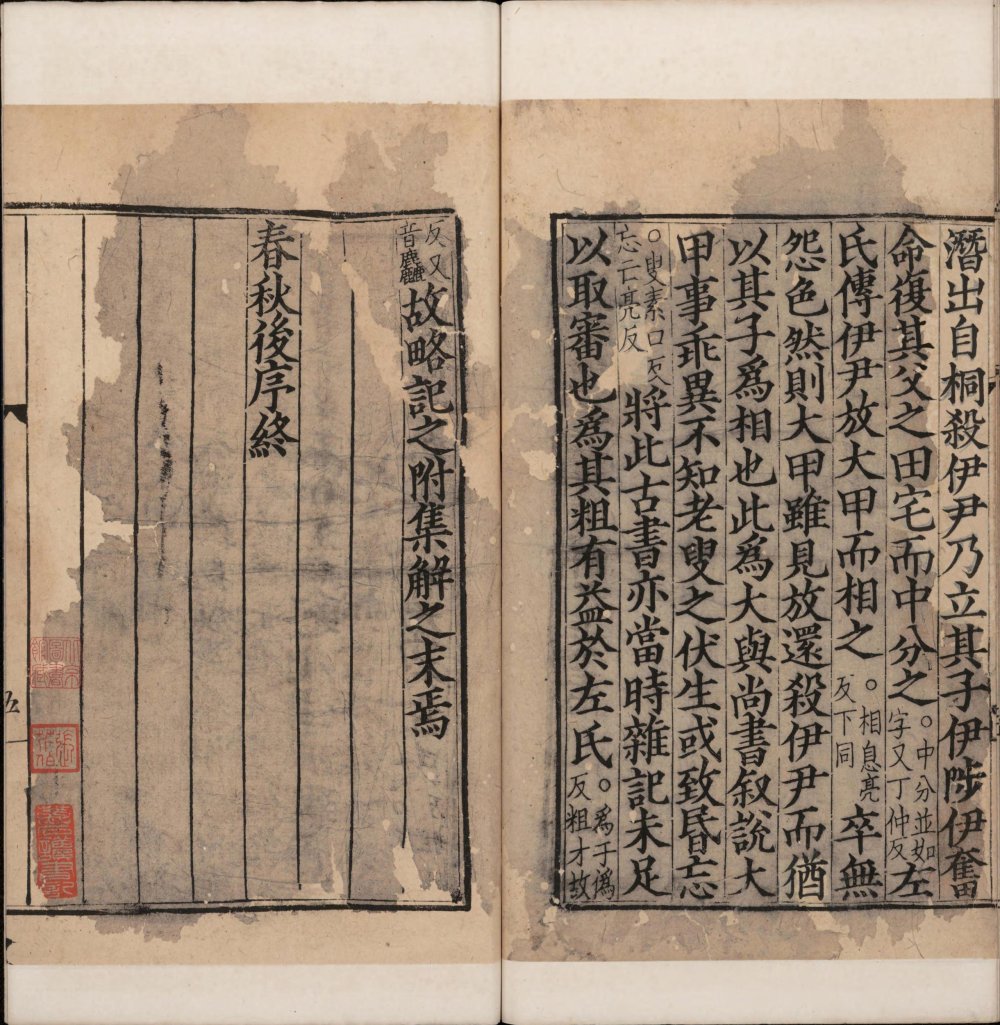 潛出自桐殺伊尹乃立其子伊陟伊奮
命復其父之田宅而中分之。中分並如字又丁仲反左
氏傳伊尹放大甲而相之。相息亮反下同卒無
怨色然則大甲雖見放還殺伊尹而猶
以其子爲相也此爲大與尚書叙說大
甲事乖異不知老叟之伏生或致昬忘
。叟素口反忘亡亮反將此古書亦當時雜記未足
以取審也爲其粗有益於左氏。爲于僞反粗才故
反又音麤故略記之附集解之末焉
春秋後序終
五